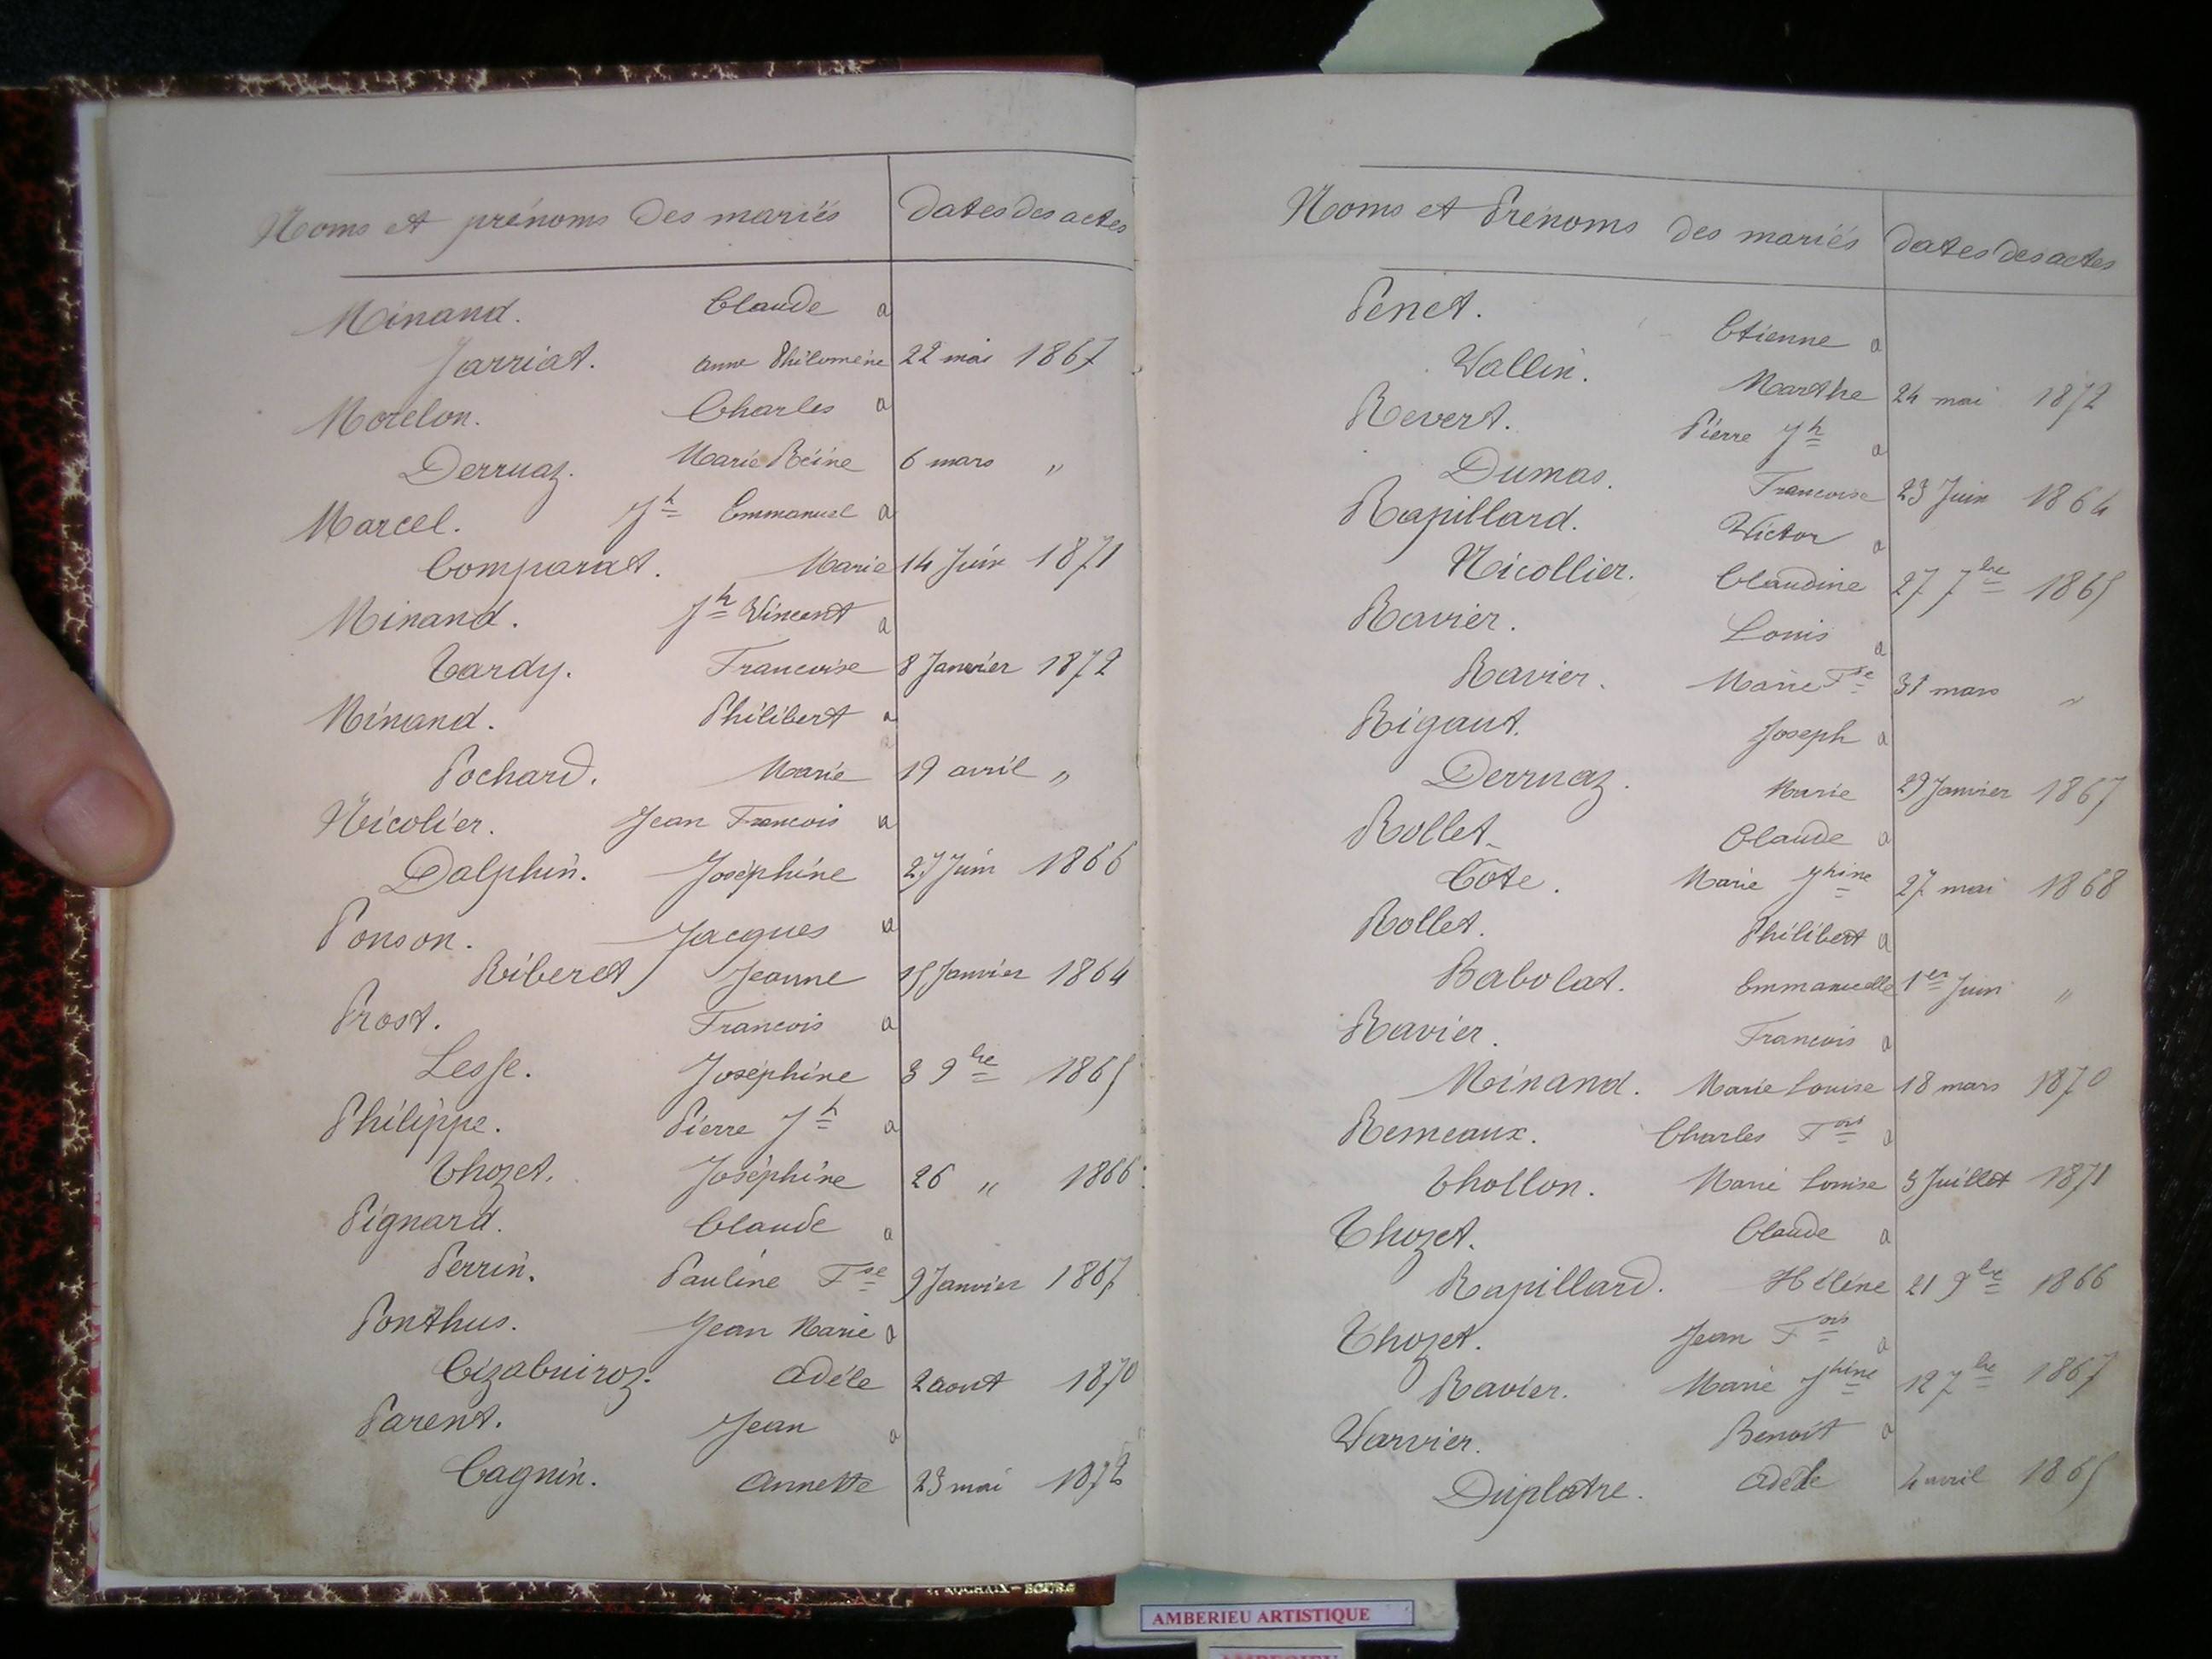 Noms et prénoms des mariés dates des actes
Minand. Claude a
Jarriat. anne Philomène 22 mai 1867
Morelon. Charles a
Derruaz. Marie Reine 6 mars "
Marcel. Jh Emmanuel a
Comparat. Marie 14 Juin 1871
Minand. Jh Vincent a
Tardy. Francoise 8 Janvier 1872
Minand. Philibert a
Pochard. Marie 19 avril "
Nicolier. Jean Francois a
Dalphin. Joséphine 27 Juin 1866
Ponson. Jacques a
Riberet Jeanne 15 Janvier 1864
Prost. Francois a
Lesse. Joséphine 3 9bre 1865
Philippe. Pierre Jh a
Thozet. Joséphine 26 " 1866
Pignard. Claude a
Perrin. Pauline Fse 9 Janvier 1867
Ponthus. Jean Marie a
Cizabuiroz. adèle 2 aout 1870
Parent. Jean a
Cagnin. annette 23 mai 1872
Noms et Prénoms des mariés dates des actes
Penet. Etienne a
Vallin. Marthe 24 mai 1872
Revert. Pierre Jh a
Dumas. Francoise 23 Juin 1864
Rapillard. Victor a
Nicollier. Claudine 27 7bre 1865
Ravier. Louis a
Ravier. Marie Fse 31 mars "
Rigaut. Joseph a
Derruaz. Marie 29 Janvier 1867
Rollet. Claude a
Côte. Marie Jhine 27 mai 1868
Rollet. Philibert a
Babolat. Emmanuelle 1er Juin "
Ravier. Francois a
Minand. Marie Louise 18 mars 1870
Remeaux. Charles Fois a
Thollon. Marie Louise 3 Juillet 1871
Thozet. Claude a
Rapillard. Hélène 21 9bre 1866
Thozet. Jean Fois a
Ravier. Marie Jhine 12 7bre 1867
Varvier. Benoit a
Duplatre. adèle 4 avril 1865
AMBERIEU ARTISTIQUE